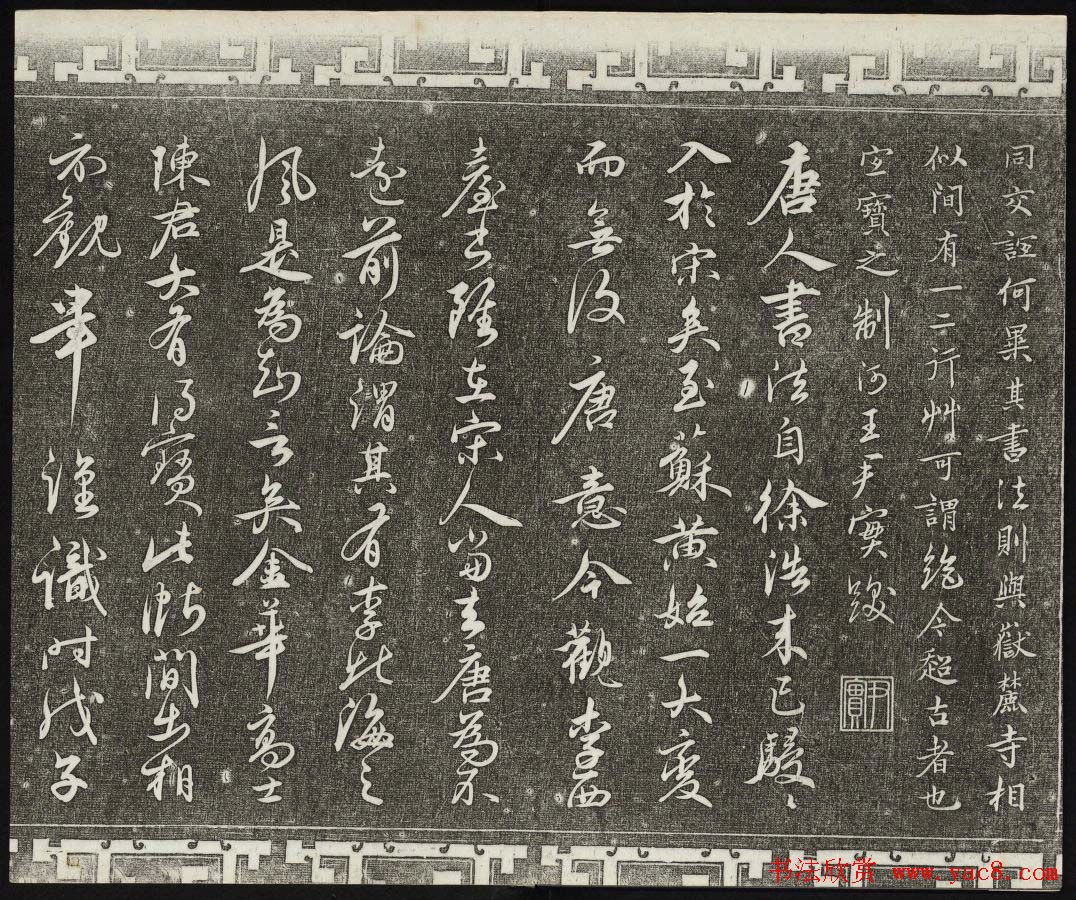 同交誼何異其書法則與嶽麓寺相
似間有一二行艸可謂絶今超古者也
宜寶之 制河王尹實跋
尹實
唐人書法自徐浩来已駸〻
入於宋矣至蘇黄始一大变
而無復唐意今觀李西
臺书雖在宋人當去唐為不
遠前論謂其有李北海之
風是為知言矣金華高士
陳君大有得寳此帖間出相
示觀畢謹識时戊子
书法欣赏 www.yac8.com